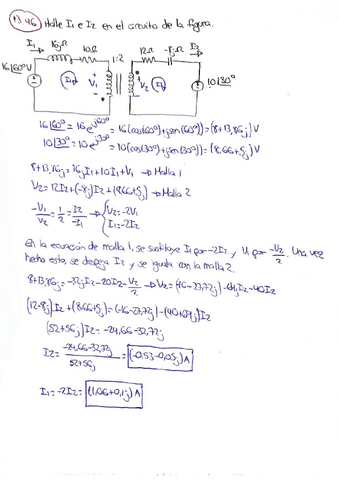 13.46 Halle I1 e I2 en el circuito de la figura.
I1 16jΩ 10Ω 1:2 12Ω -8jΩ I2
16|60° V V1 V2 10|30°
16|60° = 16e^j60° = 16(cos(60°)+jsen(60°)) = (8+13,86j)V
10|30° = 10e^j30° = 10(cos(30°)+jsen(30°)) = (8,66+5j)V
8+13,86j = 16jI1+10I1+V1 → Malla 1
V2 = 12I2+(-8j)I2+(8,66+5j) → Malla 2
-V1/V2 = 1/2 = I2/-I1 → {V2=-2V1
I1=-2I2
En la ecuación de malla 1, se sustituye I1 por -2I2 y V1 por -V2/2. Una vez
hecho esto, se despeja V2 y se iguala con la malla 2.
8+13,86j = -32jI2-20I2-V2/2 → V2=(-16-27,72j)-64jI2-40I2
(12-8j)I2+(8,66+5j) = (-16-27,72j)-(40+64j)I2
(52+56j)I2 = -24,66-32,72j
I2 = -24,66-32,72j/52+56j = (-0,53-0,05j)A
I1=-2I2 = (1,06+0,1j)A